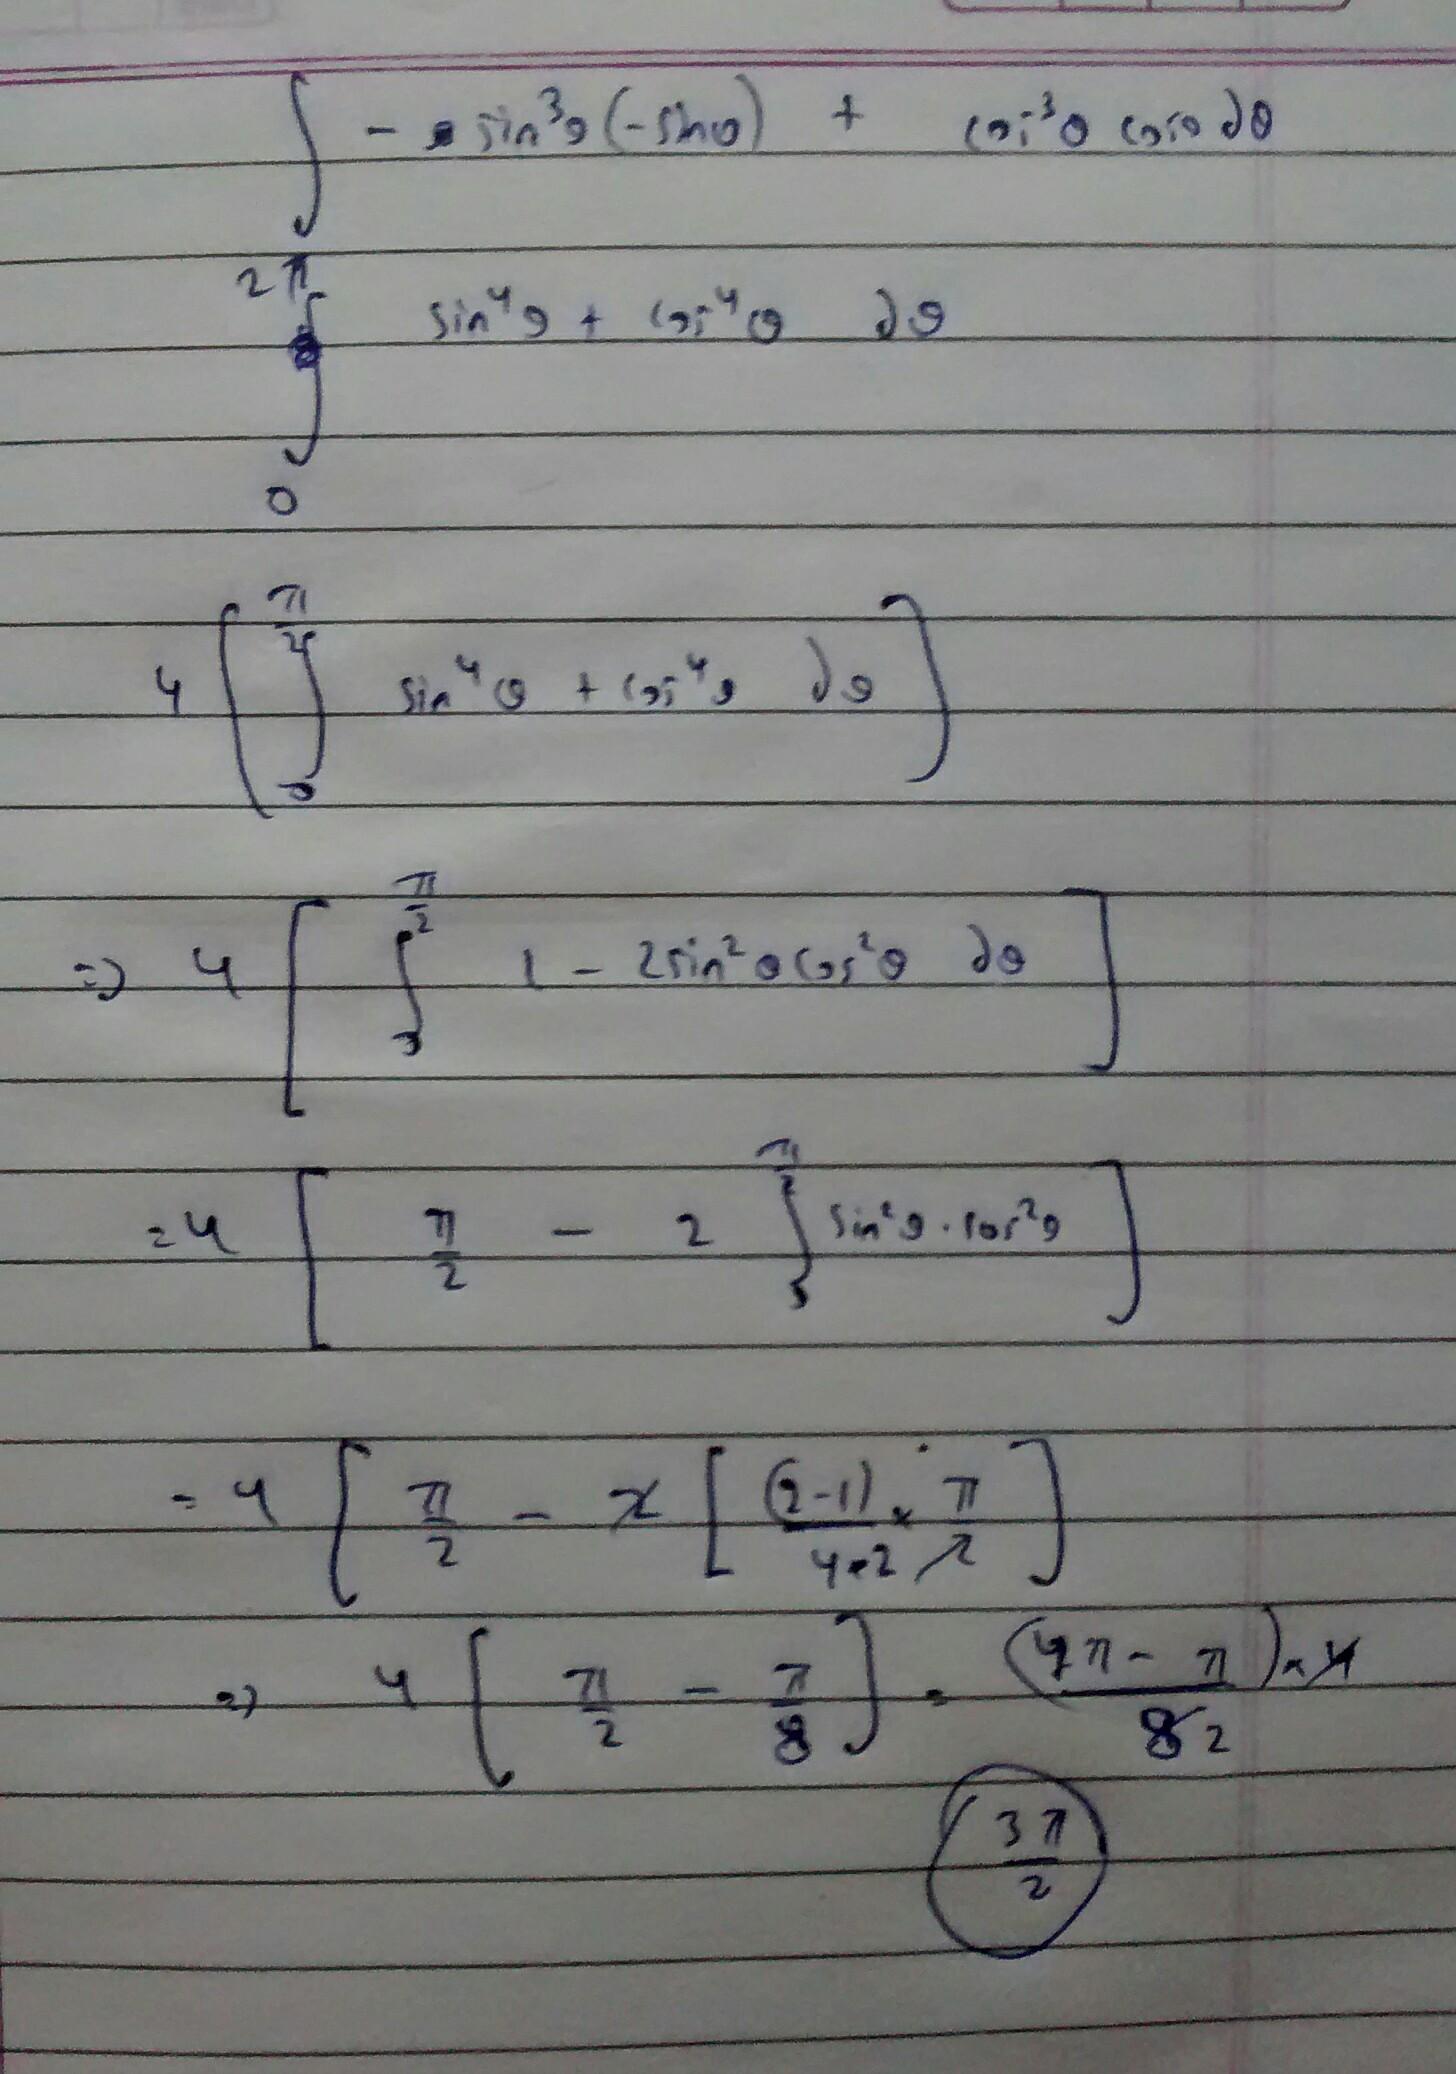 ∫ - sin³θ(-sinθ) + cos³θ cosθ dθ
∫₀^2π sin⁴θ + cos⁴θ dθ
4 [ ∫₀^π/2 sin⁴θ + cos⁴θ dθ ]
=> 4 [ ∫₀^π/2 1 - 2sin²θcos²θ dθ ]
= 4 [ π/2 - 2 ∫₀^π/2 sin²θ · cos²θ ]
= 4 [ π/2 - 2 [ (2-1)/4·2 × π/2 ]
=> 4 [ π/2 - π/8 ] = (4π - π) × 4 / 8 2
3π/2